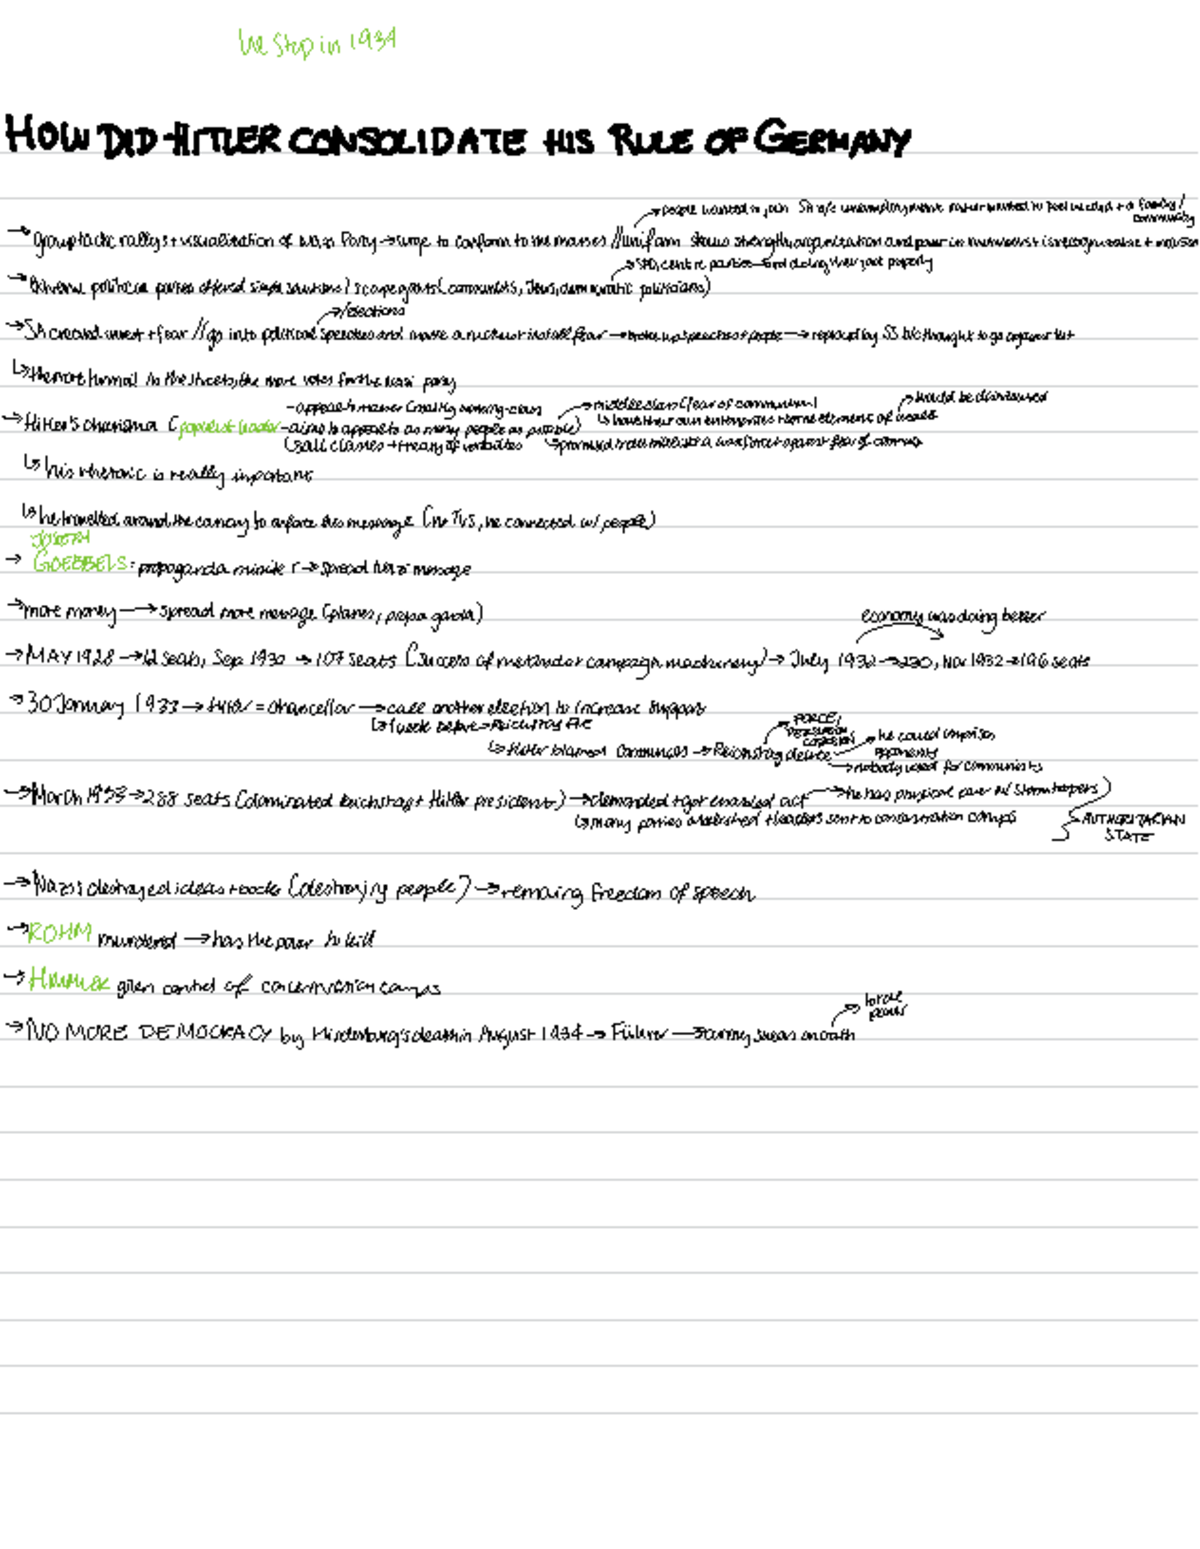 We stop in 1934
HOW DID HITLER CONSOLIDATE HIS RULE OF GERMANY
→ people wanted to join SA b/c unemployment wanted to feel needed + a family/
community
→ group tactic rallys + visualization of Nazi Party → urge to conform to the masses // uniform shows strength, organization and power in numbers + is recognizable +
→ SPD, centre parties and doing their job properly
→ Extreme political parties offered simple solutions / scapegoats (communists, Jews, democratic politicians)
→ /elections
→ SA created unrest + fear // go into political speeches and make a ruckus + install fear → broke up speeches + people → replaced by SS b/c thought to go against
↳ the more turmoil in the streets, the more votes for the Nazi party
- appeal to masses (mainly working-class → middle class (fear of communism) → would be dismissed
→ Hitler's charisma (populist leader - aims to appeal to as many people as possible) ↳ have their own enterprises + some element of wealth
(↳ all classes + treaty of versailles ↳ promised industrialists a workforce against fear of
↳ his rhetoric is really important
↳ he travelled around the country to enforce this message (no TVs, he connected w/ people)
JOSEPH
→ GOEBBELS: propaganda minister → spread nazi message
→ more money → spread more message (planes, propaganda)
economy was doing better
→ MAY 1928 → 12 seats, Sep 1930 → 107 seats (success of methods or campaign machinery) → July 1932 → 230, Nov 1932 → 196 seats
→ 30 January 1933 → Hitler = chancellor → call another election to increase support
↳ 1 week before → Reichstag fire
FORCE/
PERSUASION
COERSION
→ he could imprison
opponents
↳ Hitler blamed communists → Reichstag decree
→ nobody voted for communists
→ March 1933 → 288 seats (dominated Reichstag + Hitler president) → demanded + got enabled act → he has physical power w/ Stormtroopers)
↳ many parties abolished + leaders sent to concentration camps
AUTHORITARIAN
STATE
→ Nazis destroyed ideas + books (destroying people) → removing freedom of speech
→ ROHM murdered → has the power to kill
→ Himmler given control of concentration camps
→ total
power
→ NO MORE DEMOCRACY by Hindenburg's death in August 1934 → Führer → army swears an oath